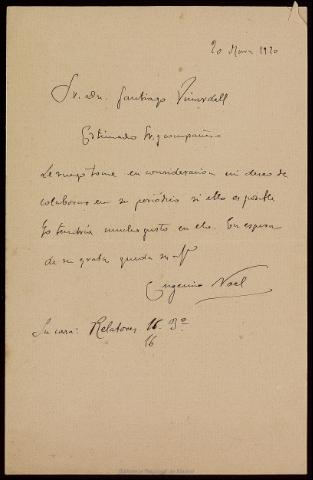 20 Marzo 1920
Sr. dn. Santiago Vinardell
Estimado Sr. y compañero
Le ruego tome en consideración mi deseo de
colaborar en su periódico si ello es posible
Yo tendría mucho gusto en ello. En espera
de su grata queda su
Eugenio Noel
Su casa: Relatores 16. 3º
16
Biblioteca Regional de Madrid